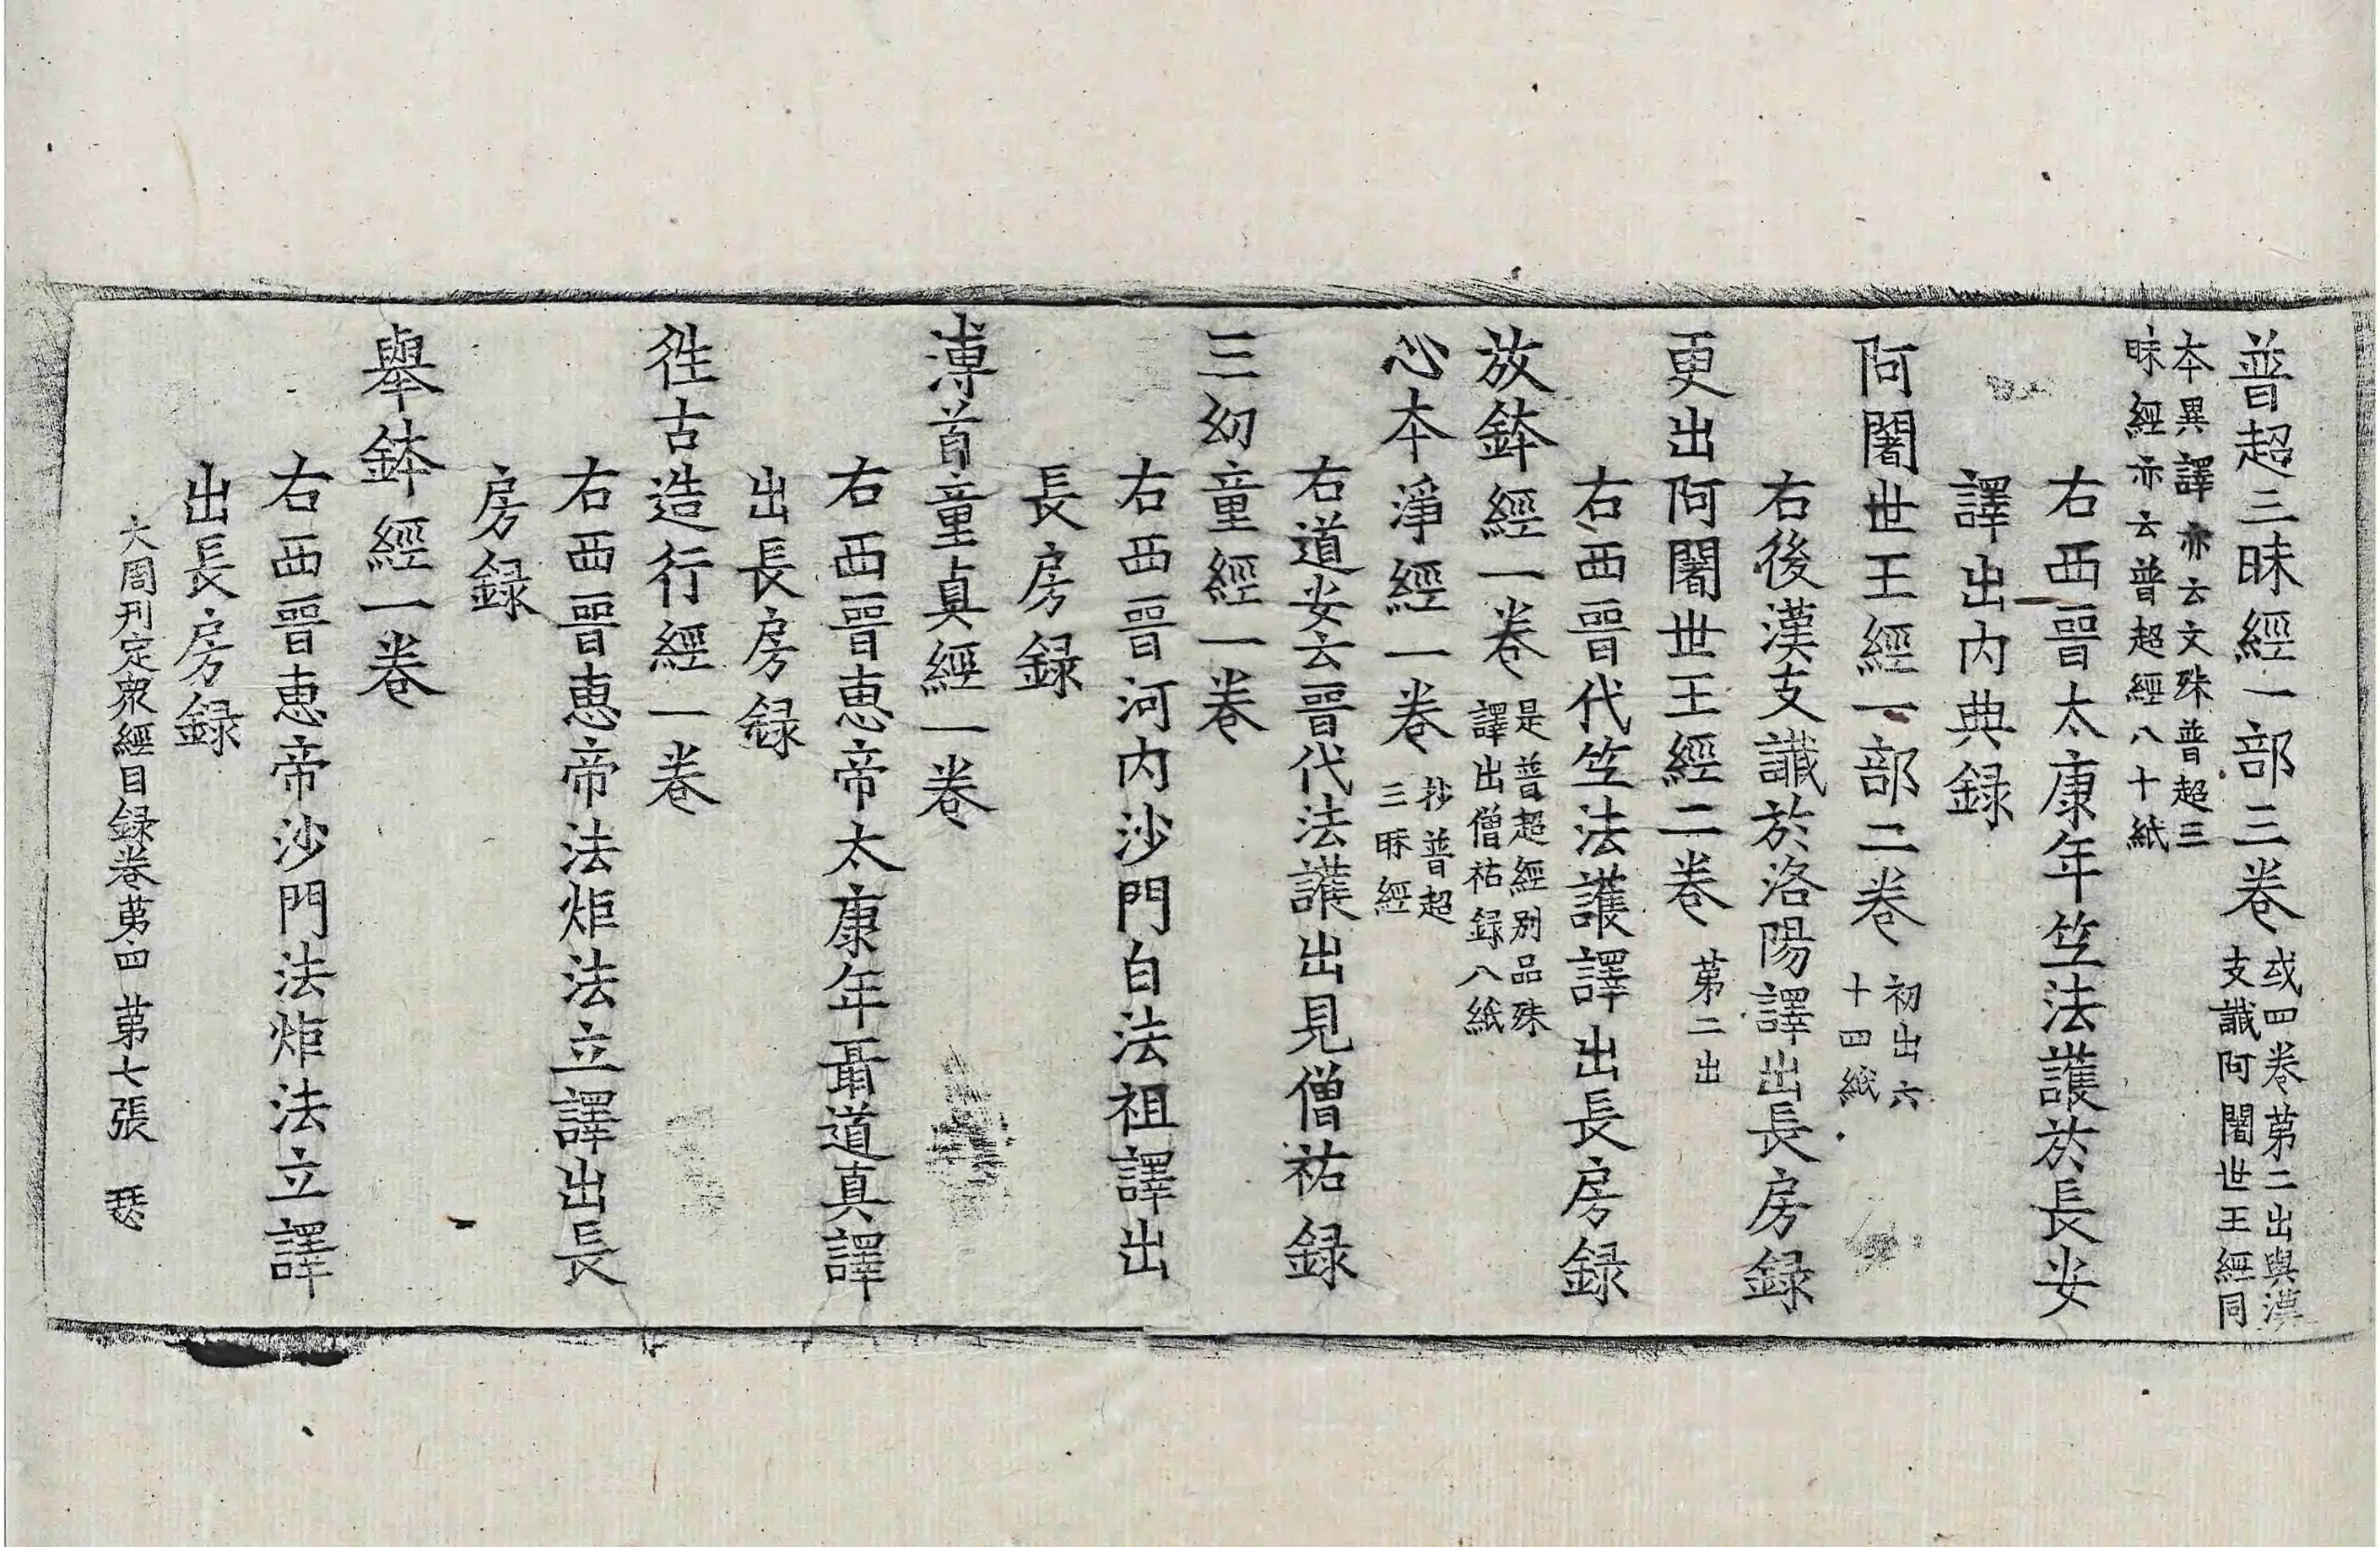 普超三昧經一部三卷
或四卷苐二出與漢
支讖阿闍世王經同
本異譯亦云文殊普超三
昧經亦云普超經八十紙
右西晉太康年竺法護於長安
譯出内典録
阿闍世王經一部二卷
初出六
十四紙
右後漢支讖於洛陽譯出長房録
更出阿闍世王經二卷
苐二出
右西晉代竺法護譯出長房録
放鉢經一卷
是普超經別品殊
譯出僧祐録八紙
心本淨經一卷
抄普超
三昧經
右道安云晉代法護出見僧祐録
三幼童經一卷
右西晉河内沙門白法祖譯出
長房録
溥首童真經一卷
右西晉惠帝太康年聶道真譯
出長房録
徃古造行經一卷
右西晉惠帝法炬法立譯出長
房録
舉鉢經一卷
右西晉惠帝沙門法炬法立譯
出長房録
大周刊定衆經目録卷苐四 苐七張 瑟